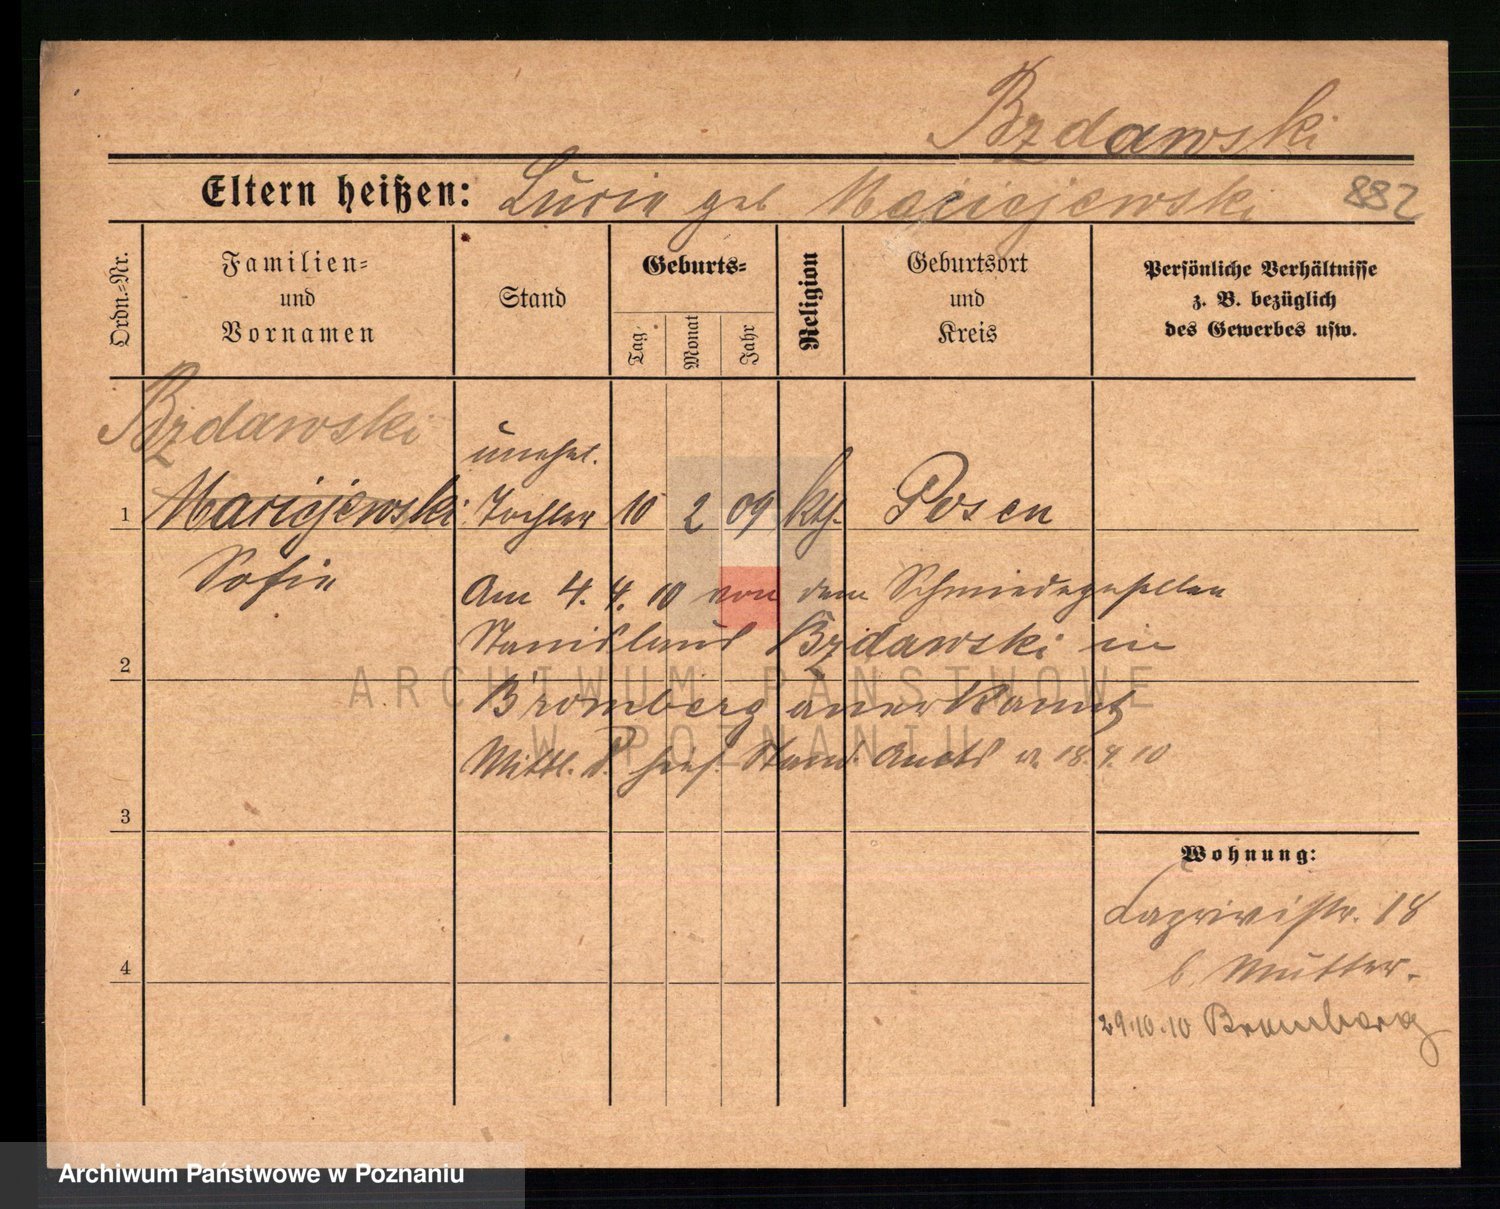 Bzdawski
Eltern heißen: Lucie geb Maciejewski 882
Ordn.-Nr.
Familien- und Vornamen
Stand
Geburts-
Tag
Monat
Jahr
Religion
Geburtsort und Kreis
Persönliche Verhältnisse z. B. bezüglich des Gewerbes usw.
Bzdawski
unehel.
1 Maciejewski Tochter 10 2 09 kth. Posen
Sofie
Am 4. 4. 10 von dem Schmiedegesellen
Stanislaus Bzdawski in
2
Bromberg anerkannt
Mittl. d. hies. Stand. Amts v. 18. 4. 10
3
Wohnung:
Caprivistr. 18
4
b. Mutter.
29.10.10 Bromberg
ARCHIWUM PAŃSTWOWE
W POZNANIU
Archiwum Państwowe w Poznaniu